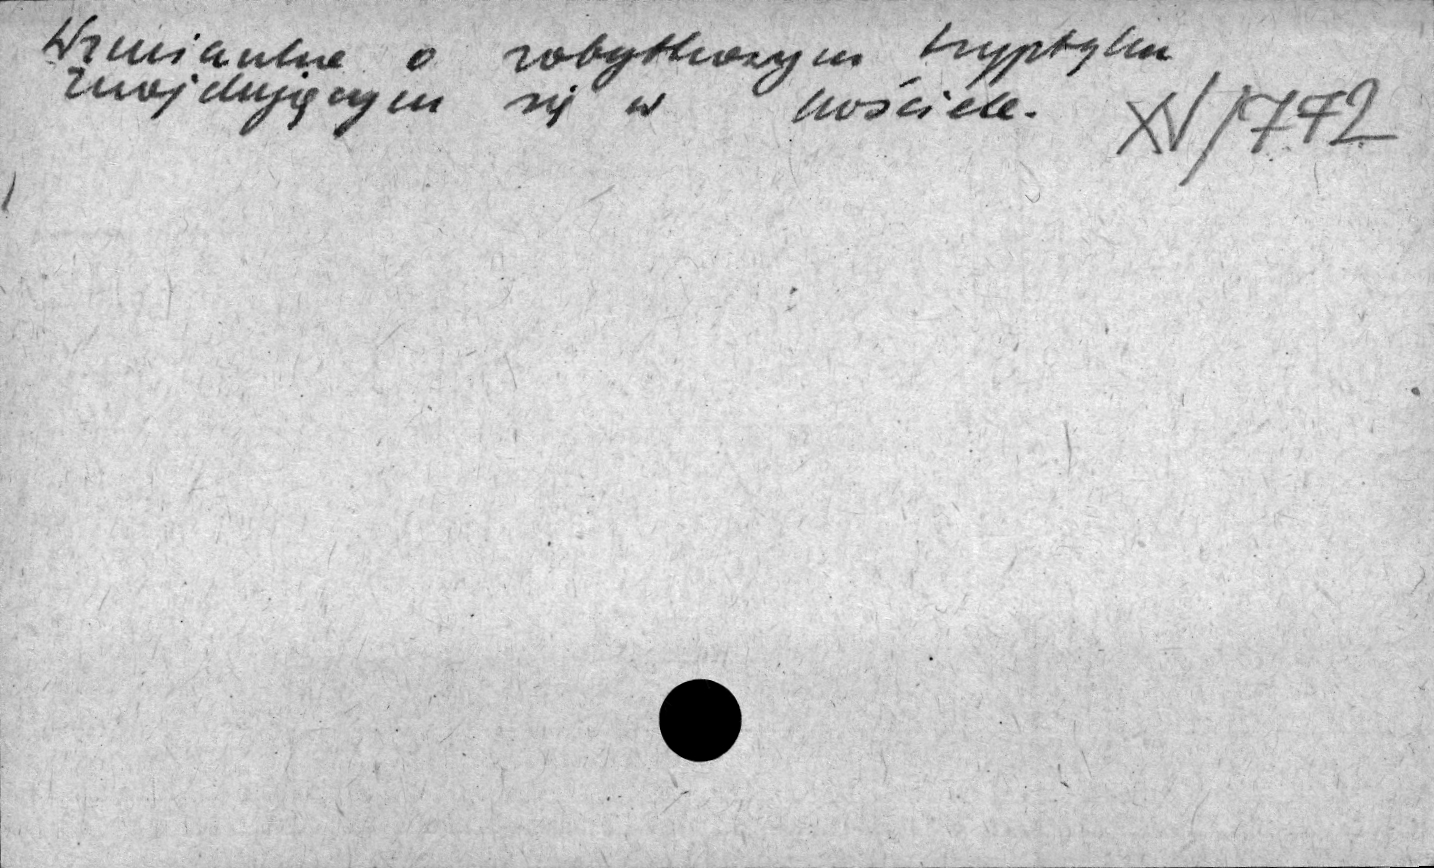 Wzmianka o zabytkowym tryptyku
znajdującym się w kościele.
XV/772